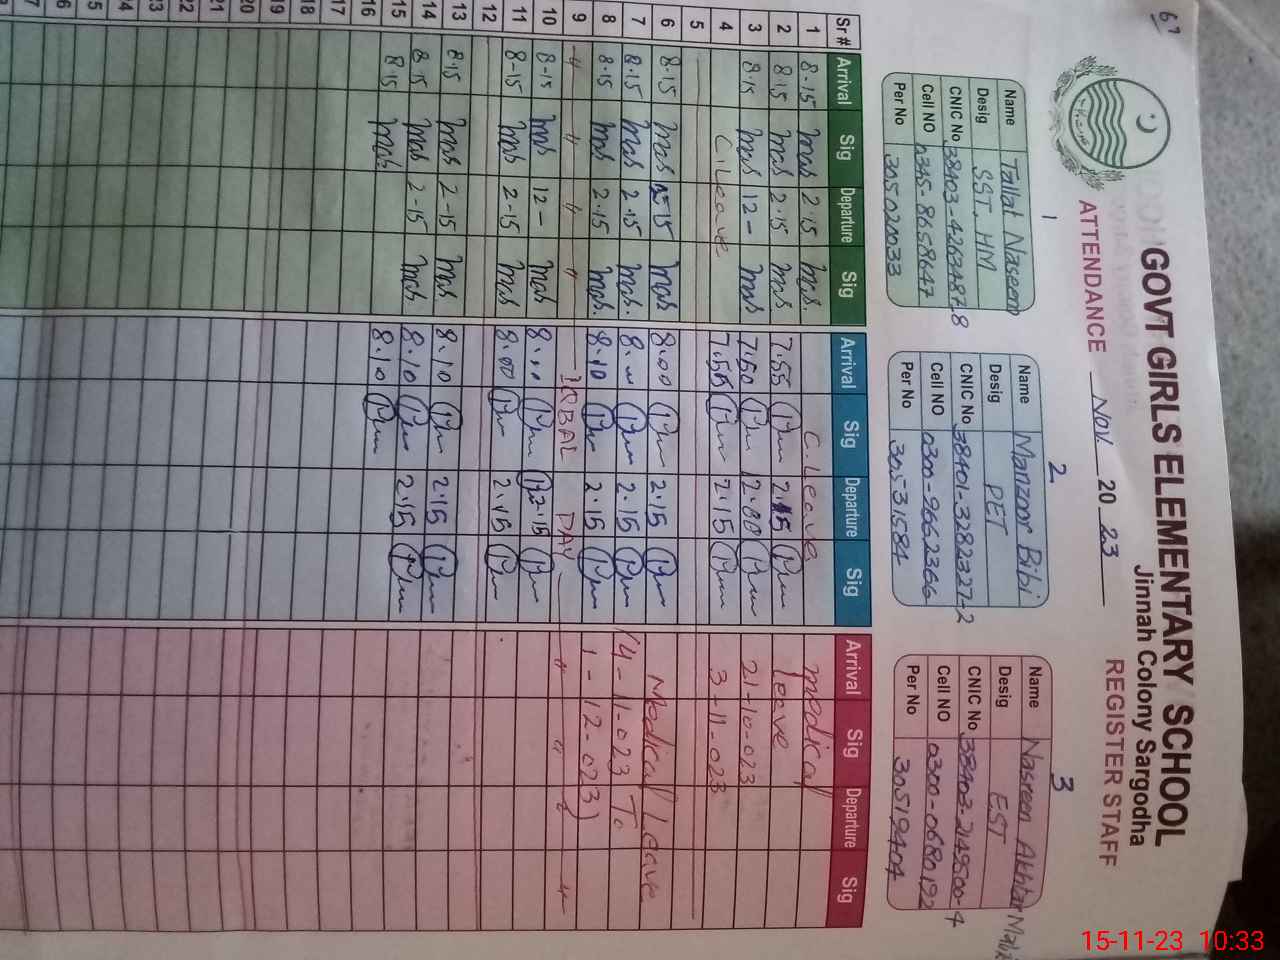 67
GOVT GIRLS ELEMENTARY SCHOOL
Jinnah Colony Sargodha
ATTENDANCE Nov. 20 23 REGISTER STAFF
1
Name Tallat Naseem
Desig SST, HM
CNIC No
Cell NO 0345-8658647
Per No 30502033
2
Name Manzoor Bibi
Desig PET
CNIC No 38401-3282327-2
Cell NO 0300-9662366
Per No 30531584
3
Name Nasreen Akhtar
Desig EST
CNIC No 38403-2149500-4
Cell NO 0300-0680192
Per No 30519404
Sr# Arrival Sig Departure Sig Arrival Sig Departure Sig Arrival Sig Departure Sig
1 8.15 2.15 C.Leave medical
2 8.15 2.15 7.55 2.15 leave
3 8.15 12- 7.50 2.00 21-10-023
4 C.Leave 7.55 2.15 3-11-023
5
6 8.15 8.00 2.15 Medical Leave
7 8.15 2.15 2.15 (4-11-023 To
8 8.15 2.15 8.10 2.15 1-12-023)
9 " " " " IQBAL DAY " " " "
10 8-15 12- 12.15
11 8-15 2-15 8.00 2.15
12
13 8.15 2-15 8.10 2.15
14 8.15 2-15 8.10 2.15
15 8.15 8.10
16
17
18
19
20
21
22
23
15-11-23 10:33